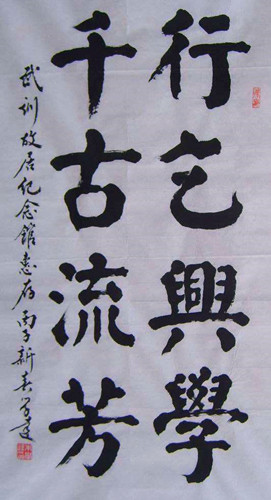 行乞興學
千古流芳
武训故居纪念館惠存 丙子新春